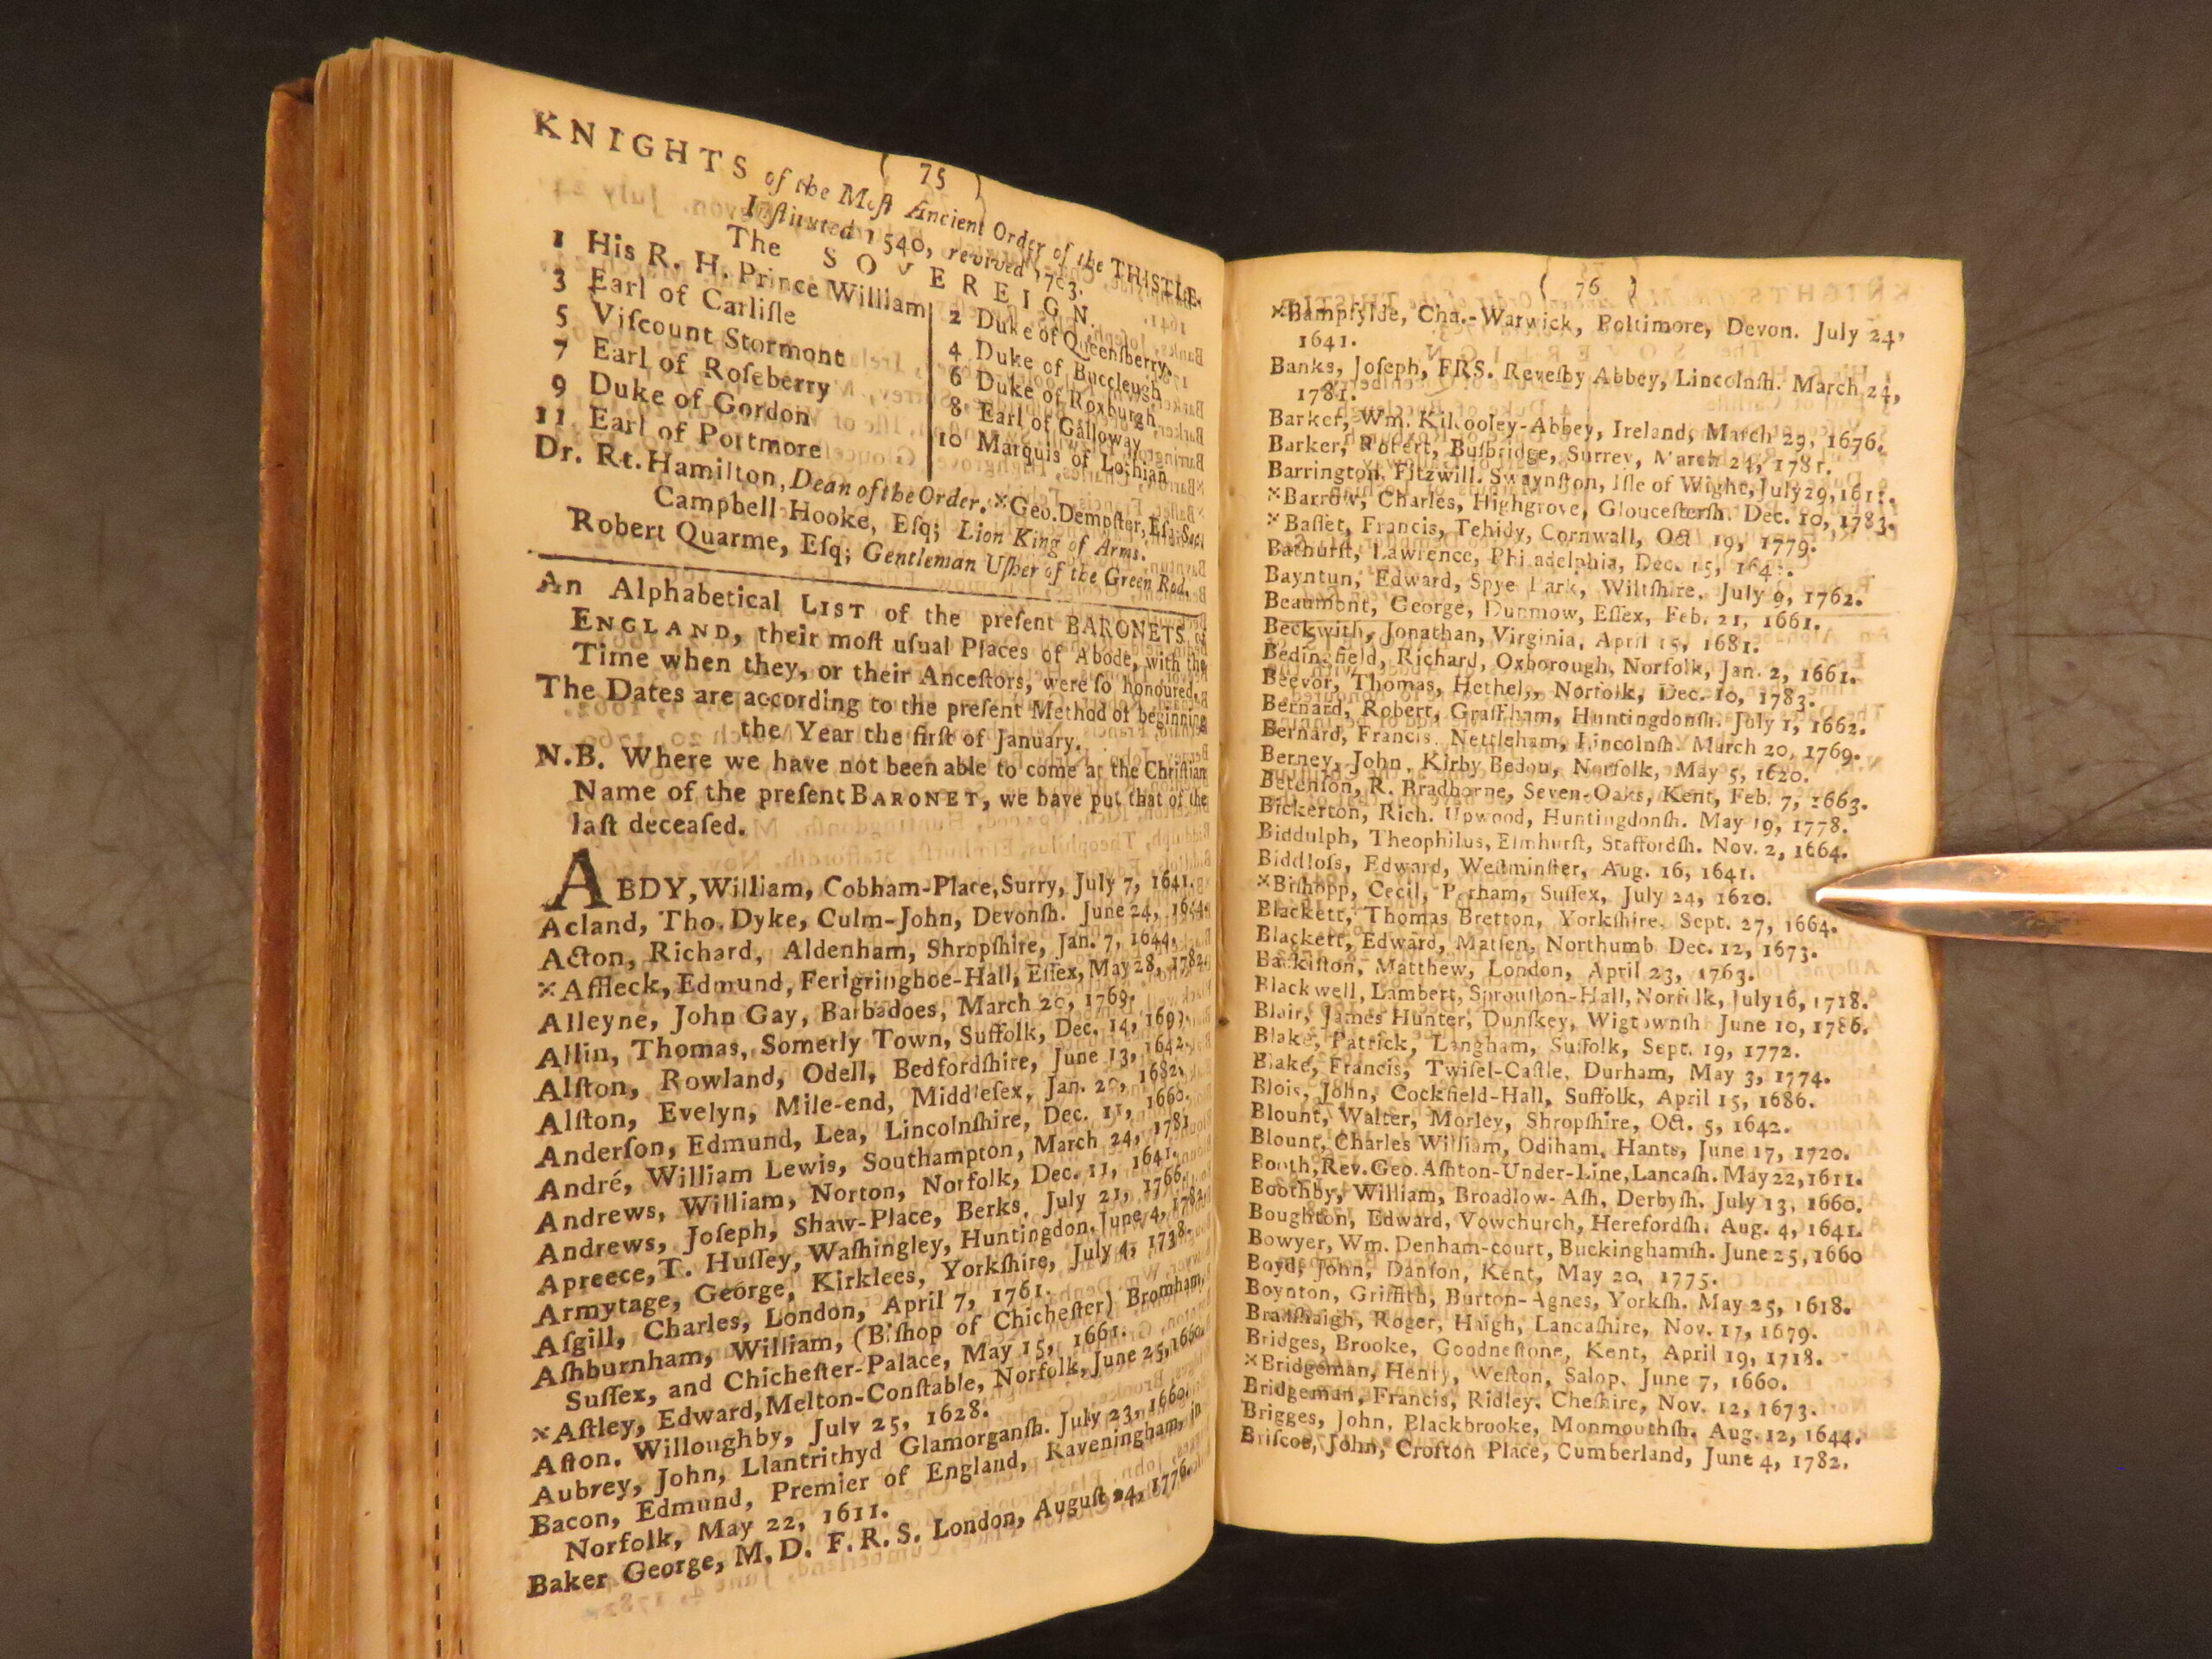 ( 75 )
KNIGHTS of the Moſt Ancient Order of the THISTLE.
Inſtituted 1540, revived 1703.
The SOVEREIGN.
1 His R. H. Prince William
3 Earl of Carliſle
5 Viſcount Stormont
7 Earl of Roſeberry
9 Duke of Gordon
11 Earl of Portmore
2 Duke of Queenſberry.
4 Duke of Buccleugh
6 Duke of Roxburgh
8 Earl of Galloway
10 Marquis of Lothian
Dr. Rt. Hamilton, Dean of the Order. ※Geo. Dempſter, Eſq; Sec.
Campbell-Hooke, Eſq; Lion King of Arms.
Robert Quarme, Eſq; Gentleman Uſher of the Green Rod.
An Alphabetical LIST of the preſent BARONETS of
ENGLAND, their moſt uſual Places of Abode, with the
Time when they, or their Anceſtors, were ſo honoured.
The Dates are according to the preſent Method of beginning
the Year the firſt of January.
N.B. Where we have not been able to come at the Chriſtian
Name of the preſent BARONET, we have put that of the
laſt deceaſed.
ABDY, William, Cobham-Place, Surry, July 7, 1641.
Acland, Tho. Dyke, Culm-John, Devonſh. June 24, 1644.
Acton, Richard, Aldenham, Shropſhire, Jan. 7, 1644.
※Affleck, Edmund, Ferigringhoe-Hall, Eſſex, May 28, 1782.
Alleyne, John Gay, Barbadoes, March 20, 1769.
Allin, Thomas, Somerly Town, Suffolk, Dec. 14, 1699.
Alſton, Rowland, Odell, Bedfordſhire, June 13, 1642.
Alſton, Evelyn, Mile-end, Middleſex, Jan. 20, 1682.
Anderſon, Edmund, Lea, Lincolnſhire, Dec. 11, 1660.
André, William Lewis, Southampton, March 24, 1781.
Andrews, William, Norton, Norfolk, Dec. 11, 1641.
Andrews, Joſeph, Shaw-Place, Berks, July 21, 1766.
Apreece, T. Huſſey, Waſhingley, Huntingdon. June 4, 1782.
Armytage, George, Kirklees, Yorkſhire, July 4, 1738.
Aſgill, Charles, London, April 7, 1761.
Aſhburnham, William, (Biſhop of Chicheſter) Bromham,
Suſſex, and Chicheſter-Palace, May 15, 1661.
※Aſtley, Edward, Melton-Conſtable, Norfolk, June 25, 1660.
Aſton, Willoughby, July 25, 1628.
Aubrey, John, Llantrithyd Glamorganſh. July 23, 1660.
Bacon, Edmund, Premier of England, Raveningham, in
Norfolk, May 22, 1611.
Baker George, M.D. F.R.S. London, Auguſt 24, 1776.
( 76 )
※Bampfylde, Cha.-Warwick, Poltimore, Devon. July 24,
1641.
Banks, Joſeph, FRS. Reveſby Abbey, Lincolnſh. March 24,
1781.
Barker, Wm. Kilcooley-Abbey, Ireland, March 29, 1676.
Barker, Robert, Buſbridge, Surrey, March 24, 1781.
Barrington, Fitzwill. Swaynſton, Iſle of Wight, July 29, 1611.
※Barrow, Charles, Highgrove, Glouceſterſh. Dec. 10, 1783.
※Baſſet, Francis, Tehidy, Cornwall, Oct 19, 1779.
Bathurſt, Lawrence, Philadelphia, Dec. 15, 164
Bayntun, Edward, Spye Park, Wiltſhire, July 9, 1762.
Beaumont, George, Dunmow, Eſſex, Feb. 21, 1661.
Beckwith, Jonathan, Virginia, April 15, 1681.
Bedingfield, Richard, Oxborough, Norfolk, Jan. 2, 1661.
Beevor, Thomas, Hethel,, Norfolk, Dec. 10, 1783.
Bernard, Robert, Graffham, Huntingdonſh. July 1, 1662.
Bernard, Francis, Nettleham, Lincolnſh. March 20, 1769.
Berney, John, Kirby Bedon, Norfolk, May 5, 1620.
Betenſon, R. Bradborne, Seven-Oaks, Kent, Feb. 7, 1663.
Bickerton, Rich. Upwood, Huntingdonſh. May 19, 1778.
Biddulph, Theophilus, Elmhurſt, Staffordſh. Nov. 2, 1664.
Biddloſs, Edward, Weſtminſter, Aug. 16, 1641.
※Biſhopp, Cecil, Parham, Suſſex, July 24, 1620.
Blackett, Thomas Bretton, Yorkſhire, Sept. 27, 1664.
Blackett, Edward, Matfen, Northumb Dec. 12, 1673.
Blackiſton, Matthew, London, April 23, 1763.
Blackwell, Lambert, Sprouſton-Hall, Norfolk, July 16, 1718.
Blair, James Hunter, Dunſkey, Wigtownſh June 10, 1786.
Blake, Patrick, Langham, Suffolk, Sept. 19, 1772.
Blake, Francis, Twiſel-Caſtle, Durham, May 3, 1774.
Blois, John, Cockfield-Hall, Suffolk, April 15, 1686.
Blount, Walter, Morley, Shropſhire, Oct. 5, 1642.
Blount, Charles William, Odiham, Hants, June 17, 1720.
Booth, Rev. Geo. Aſhton-Under-Line, Lancaſh. May 22, 1611.
Boothby, William, Broadlow-Aſh, Derbyſh. July 13, 1660.
Boughton, Edward, Vowchurch, Herefordſh. Aug. 4, 1641.
Bowyer, Wm. Denham-court, Buckinghamſh. June 25, 1660
Boyd, John, Danſon, Kent, May 20, 1775.
Boynton, Griffith, Burton-Agnes, Yorkſh. May 25, 1618.
Bradſhaigh, Roger, Haigh, Lancaſhire, Nov. 17, 1679.
Bridges, Brooke, Goodneſtone, Kent, April 19, 1718.
※Bridgeman, Henry, Weſton, Salop, June 7, 1660.
Bridgeman, Francis, Ridley, Cheſhire, Nov. 12, 1673.
Brigges, John, Blackbrooke, Monmouthſh. Aug. 12, 1644.
Briſcoe, John, Crofton Place, Cumberland, June 4, 1782.